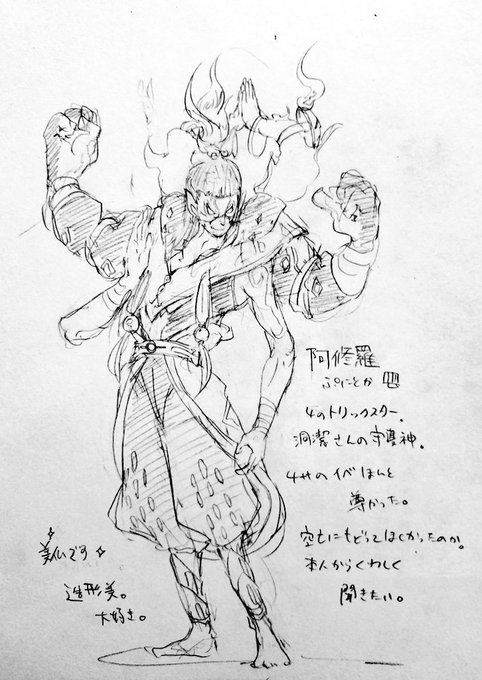 阿修羅
ぷにとか
4のトリックスター。
洞潔さんの守護神。
4サのイベほんと
尊かった。
空亡にもどってほしかったのか。
本人からくわしく
聞きたい。
美仏です
造形美。
大好き。